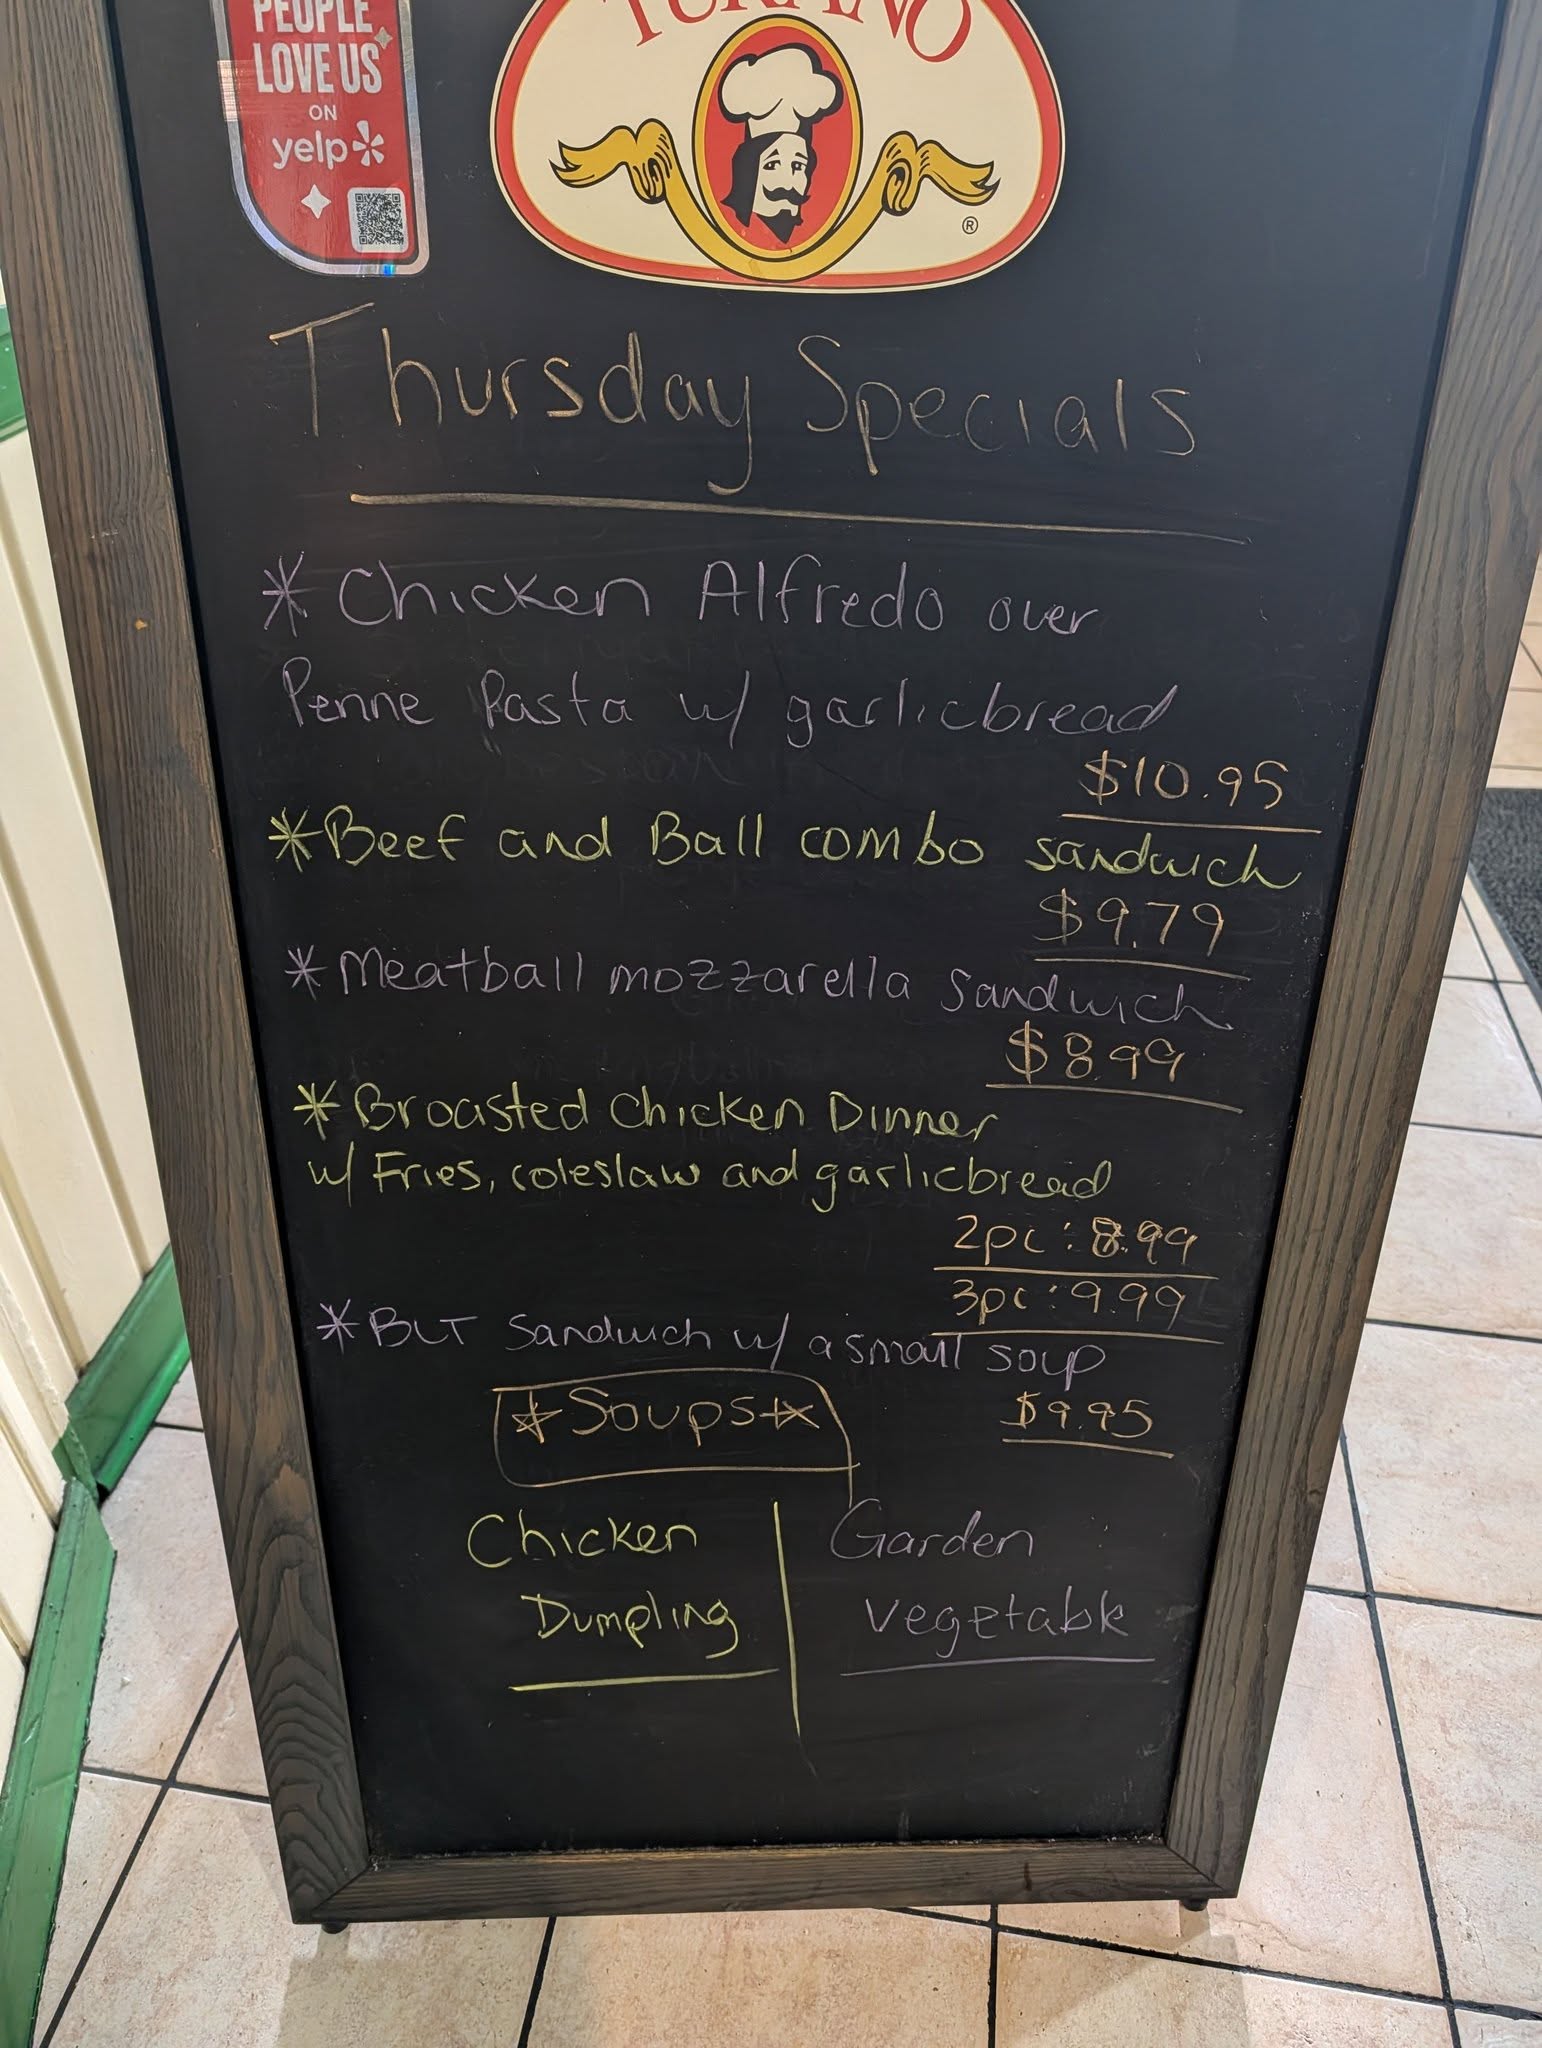 PEOPLE
LOVE US
ON
yelp
TURANO
®
Thursday Specials
* Chicken Alfredo over
Penne Pasta w/ garlicbread
$10.95
* Beef and Ball combo sandwich
$9.79
* Meatball mozzarella sandwich
$8.99
* Broasted Chicken Dinner
w/ Fries, coleslaw and garlicbread
2pc: 8.99
3pc: 9.99
* BLT Sandwich w/ a small soup
$9.95
☆Soups☆
Chicken
Dumpling
Garden
Vegetable